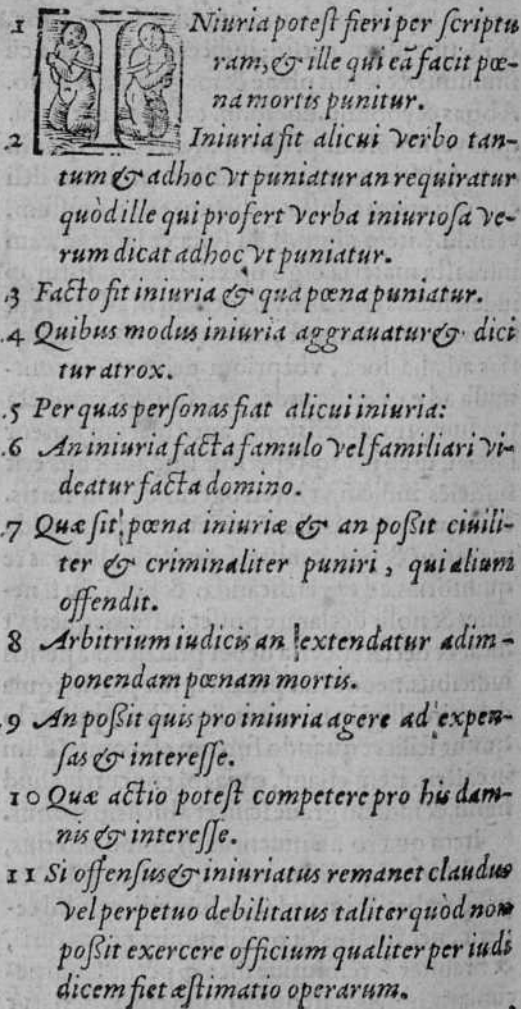 1 INiuria potest fieri per scriptu
ram, & ille qui eã facit pœ-
na mortis punitur.
.2 Iniuria fit alicui verbo tan-
tum & adhoc vt puniatur an requiratur
quòd ille qui profert verba iniuriosa ve-
rum dicat adhoc vt puniatur.
.3 Facto fit iniuria & qua pœna puniatur.
.4 Quibus modus iniuria aggrauatur & dici
tur atrox.
.5 Per quas personas fiat alicui iniuria:
.6 An iniuria facta famulo vel familiari vi-
deatur facta domino.
.7 Quæ sit pœna iniuriæ & an possit ciuili-
ter & criminaliter puniri, qui alium
offendit.
8 Arbitrium iudicis an extendatur ad im-
ponendam pœnam mortis.
.9 An possit quis pro iniuria agere ad expen-
sas & interesse.
10 Quæ actio potest competere pro his dam-
nis & interesse.
11 Si offensus & iniuriatus remanet claudus
vel perpetuo debilitatus taliter quòd non
possit exercere officium qualiter per iudi
dicem fiet æstimatio operarum.